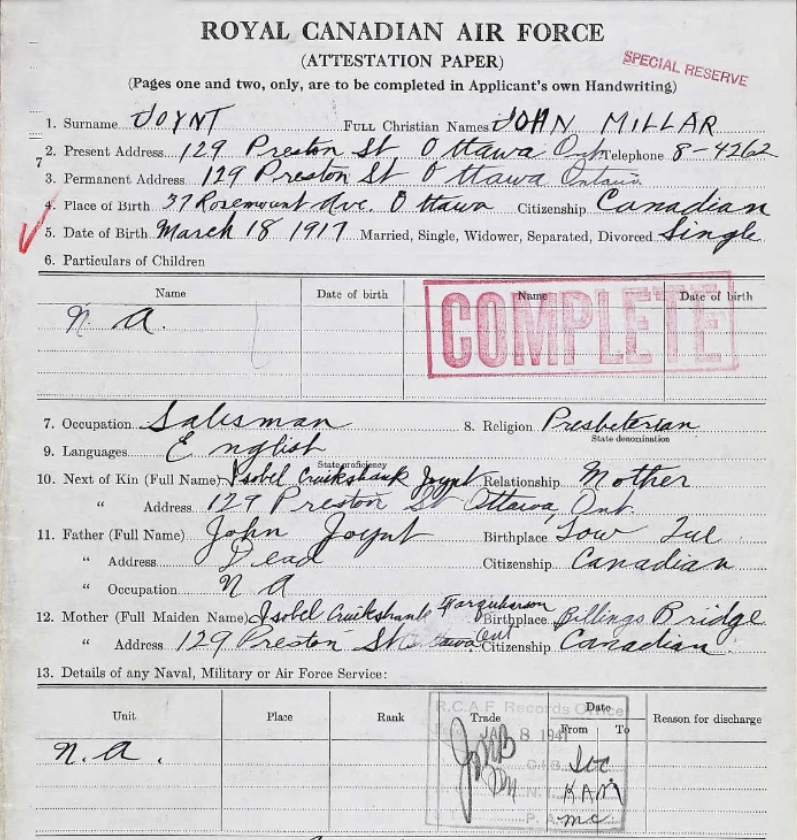 ROYAL CANADIAN AIR FORCE
(ATTESTATION PAPER)
SPECIAL RESERVE
(Pages one and two, only, are to be completed in Applicant's own Handwriting)
1. Surname JOYNT FULL Christian Names JOHN MILLAR
2. Present Address 129 Preston St Ottawa Ont. Telephone 8-4262
7
3. Permanent Address 129 Preston St Ottawa Ontario
4. Place of Birth 37 Rosemount Ave. Ottawa Citizenship Canadian
5. Date of Birth March 18 1917 Married, Single, Widower, Separated, Divorced Single
6. Particulars of Children
Name Date of birth Name Date of birth
N. A.
COMPLETE
7. Occupation Salesman 8. Religion Presbeterian
State denomination
9. Languages English
State proficiency
10. Next of Kin (Full Name) Isobel Cruikshank Joynt Relationship Mother
" Address 129 Preston St Ottawa, Ont.
11. Father (Full Name) John Joynt Birthplace Low Que
" Address Dead Citizenship Canadian
" Occupation N A
12. Mother (Full Maiden Name) Isobel Cruikshank Farquharson Birthplace Billings Bridge
" Address 129 Preston St Ottawa Ont Citizenship Canadian
13. Details of any Naval, Military or Air Force Service:
Unit Place Rank Trade Date From To Reason for discharge
R.C.A.F. Records Office
JAN 8 1941
N. A.